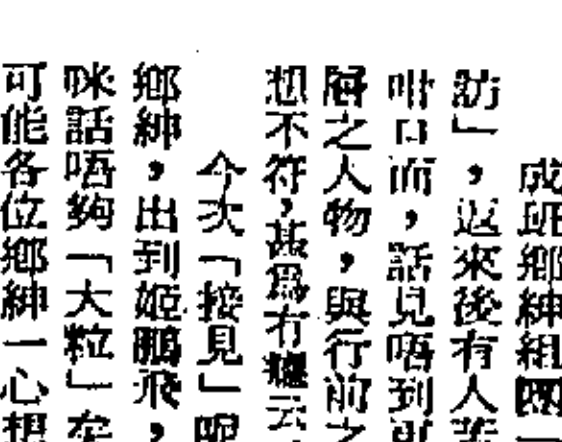 成班鄉紳組團「
訪」，返來後有人
咁口而，話見唔到更
層之人物，與行前之
想不符，甚為冇癮云
今次「接見」呢
鄉紳，出到姬鵬飛，
咪話唔夠「大粒」
可能各位鄉紳一心想